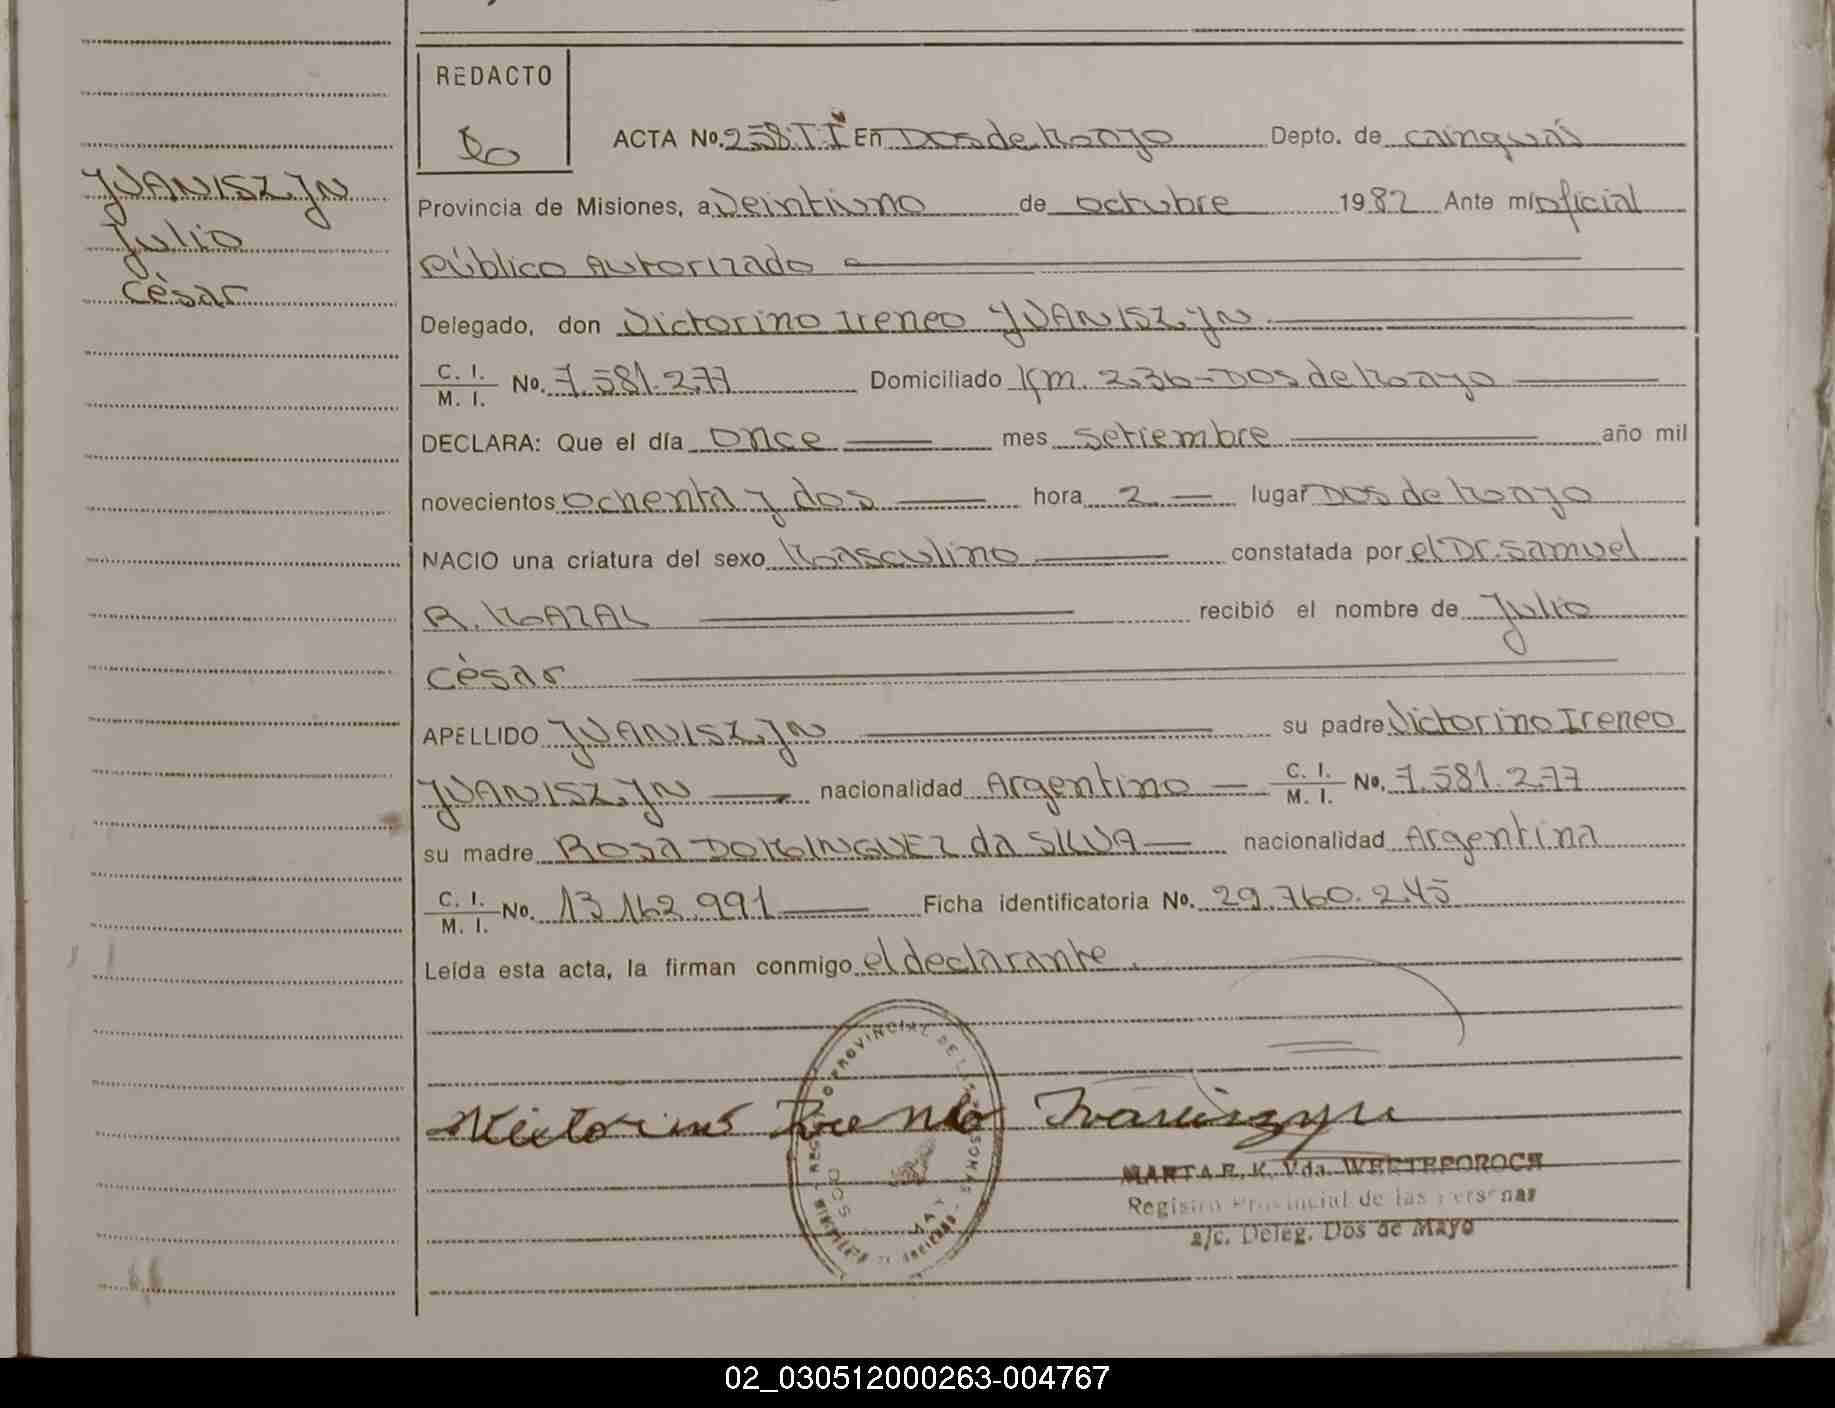 REDACTO
ACTA No. 258. TI En Dos de Mayo Depto. de Cainguás
YVANISZYN
Julio
César
Provincia de Misiones, a Veintiuno de octubre 1982 Ante mí oficial
Público Autorizado
Delegado, don Victorino Ireneo YVANISZYN
C. I.
M. I. No. 7.581.277 Domiciliado Km. 236-Dos de Mayo
DECLARA: Que el día once mes setiembre año mil
novecientos ochenta y dos hora 2 lugar Dos de Mayo
NACIO una criatura del sexo Masculino constatada por el Dr. Samuel
R. MAZAL recibió el nombre de Julio
Cèsar
APELLIDO YVANISZYN su padre Victorino Ireneo
YVANISZYN nacionalidad Argentino C. I.
M. I. No. 7.581.277
su madre Rosa DOMINGUEZ da SILVA nacionalidad Argentina
C. I.
M. I. No. 13.162.991 Ficha identificatoria No. 29.760.245
Leída esta acta, la firman conmigo el declarante.
REGISTRO PROVINCIAL DE LAS PERSONAS
DOS MAYO
Victorino Ireneo Ivaniszyn
MARTA E. K. Vda.
Registro Provincial de las Personas
a/c. Deleg. Dos de Mayo
02_030512000263-004767